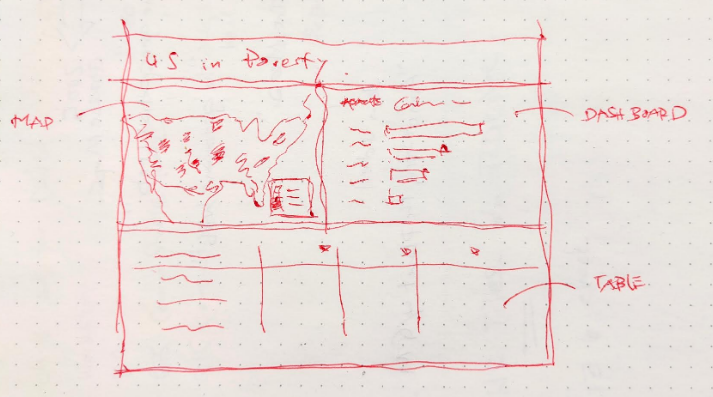 US in Poverty
MAP
DASHBOARD
TABLE